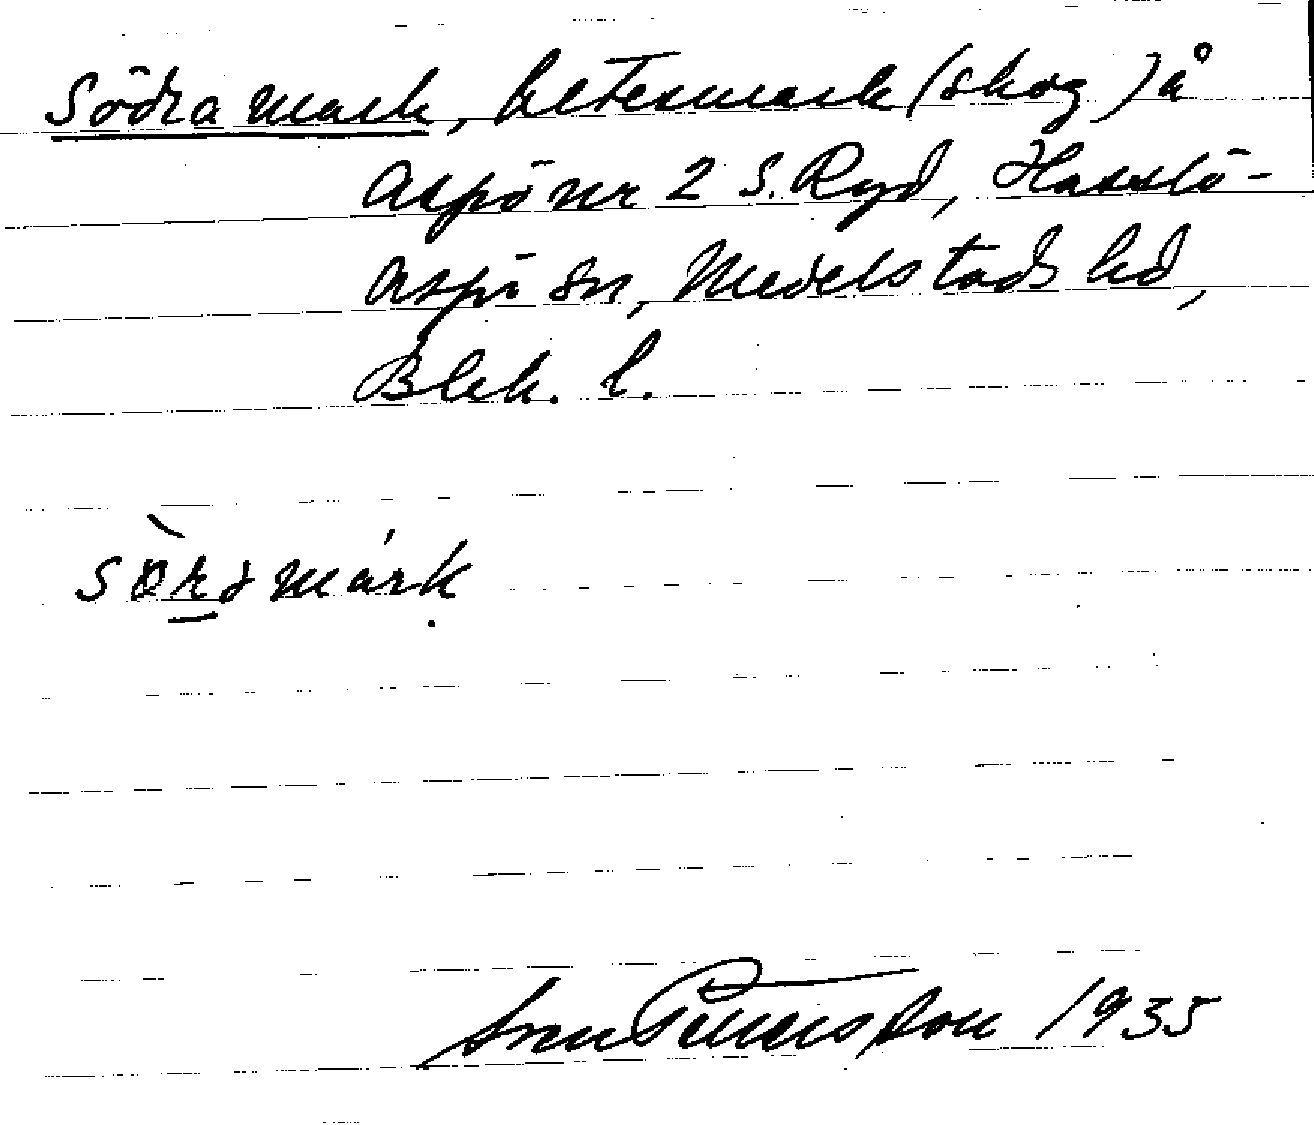 Södra mark, betesmark (skog) å
Aspö nr 2 S. Ryd, Hasslö-
Aspö sn, Medelstads hd,
Blek. l.
sörə márk
Sven Pettersson 1935